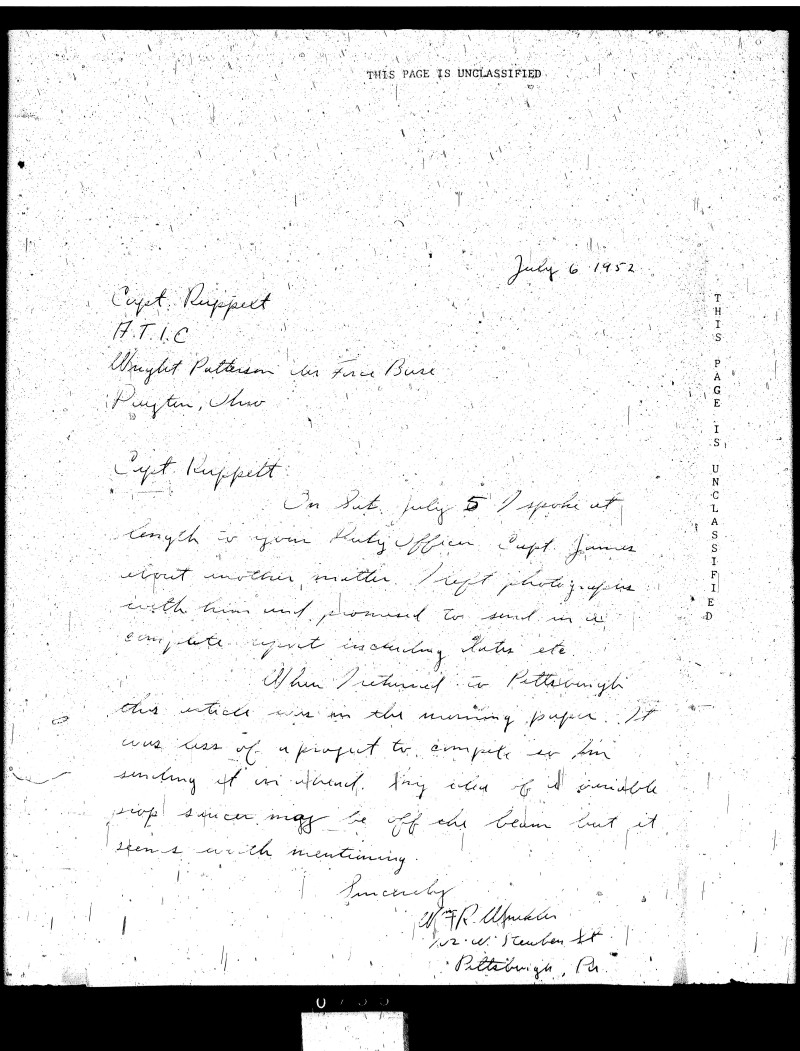 THIS PAGE IS UNCLASSIFIED
July 6 1952
Capt. Ruppelt
A.T.I.C
Wright Patterson Air Force Base
Dayton, Ohio
Capt. Ruppelt
On Sat. July 5 I spoke at
length to your Duty Officer Capt. James
about another matter. I left photographs
with him and promised to send in a
complete report including dates etc.
When I returned to Pittsburgh
this article was in the morning paper. It
was less of a project to compile so Im
sending it in ahead. My idea of a variable
saucer may be off the beam but it
seems worth mentioning.
Sincerely
Wm R.
W. Steuben St
Pittsburgh, Pa.
THIS PAGE IS UNCLASSIFIED